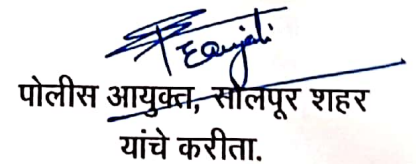 पोलीस आयुक्त, सोलपूर शहर
यांचे करीता.